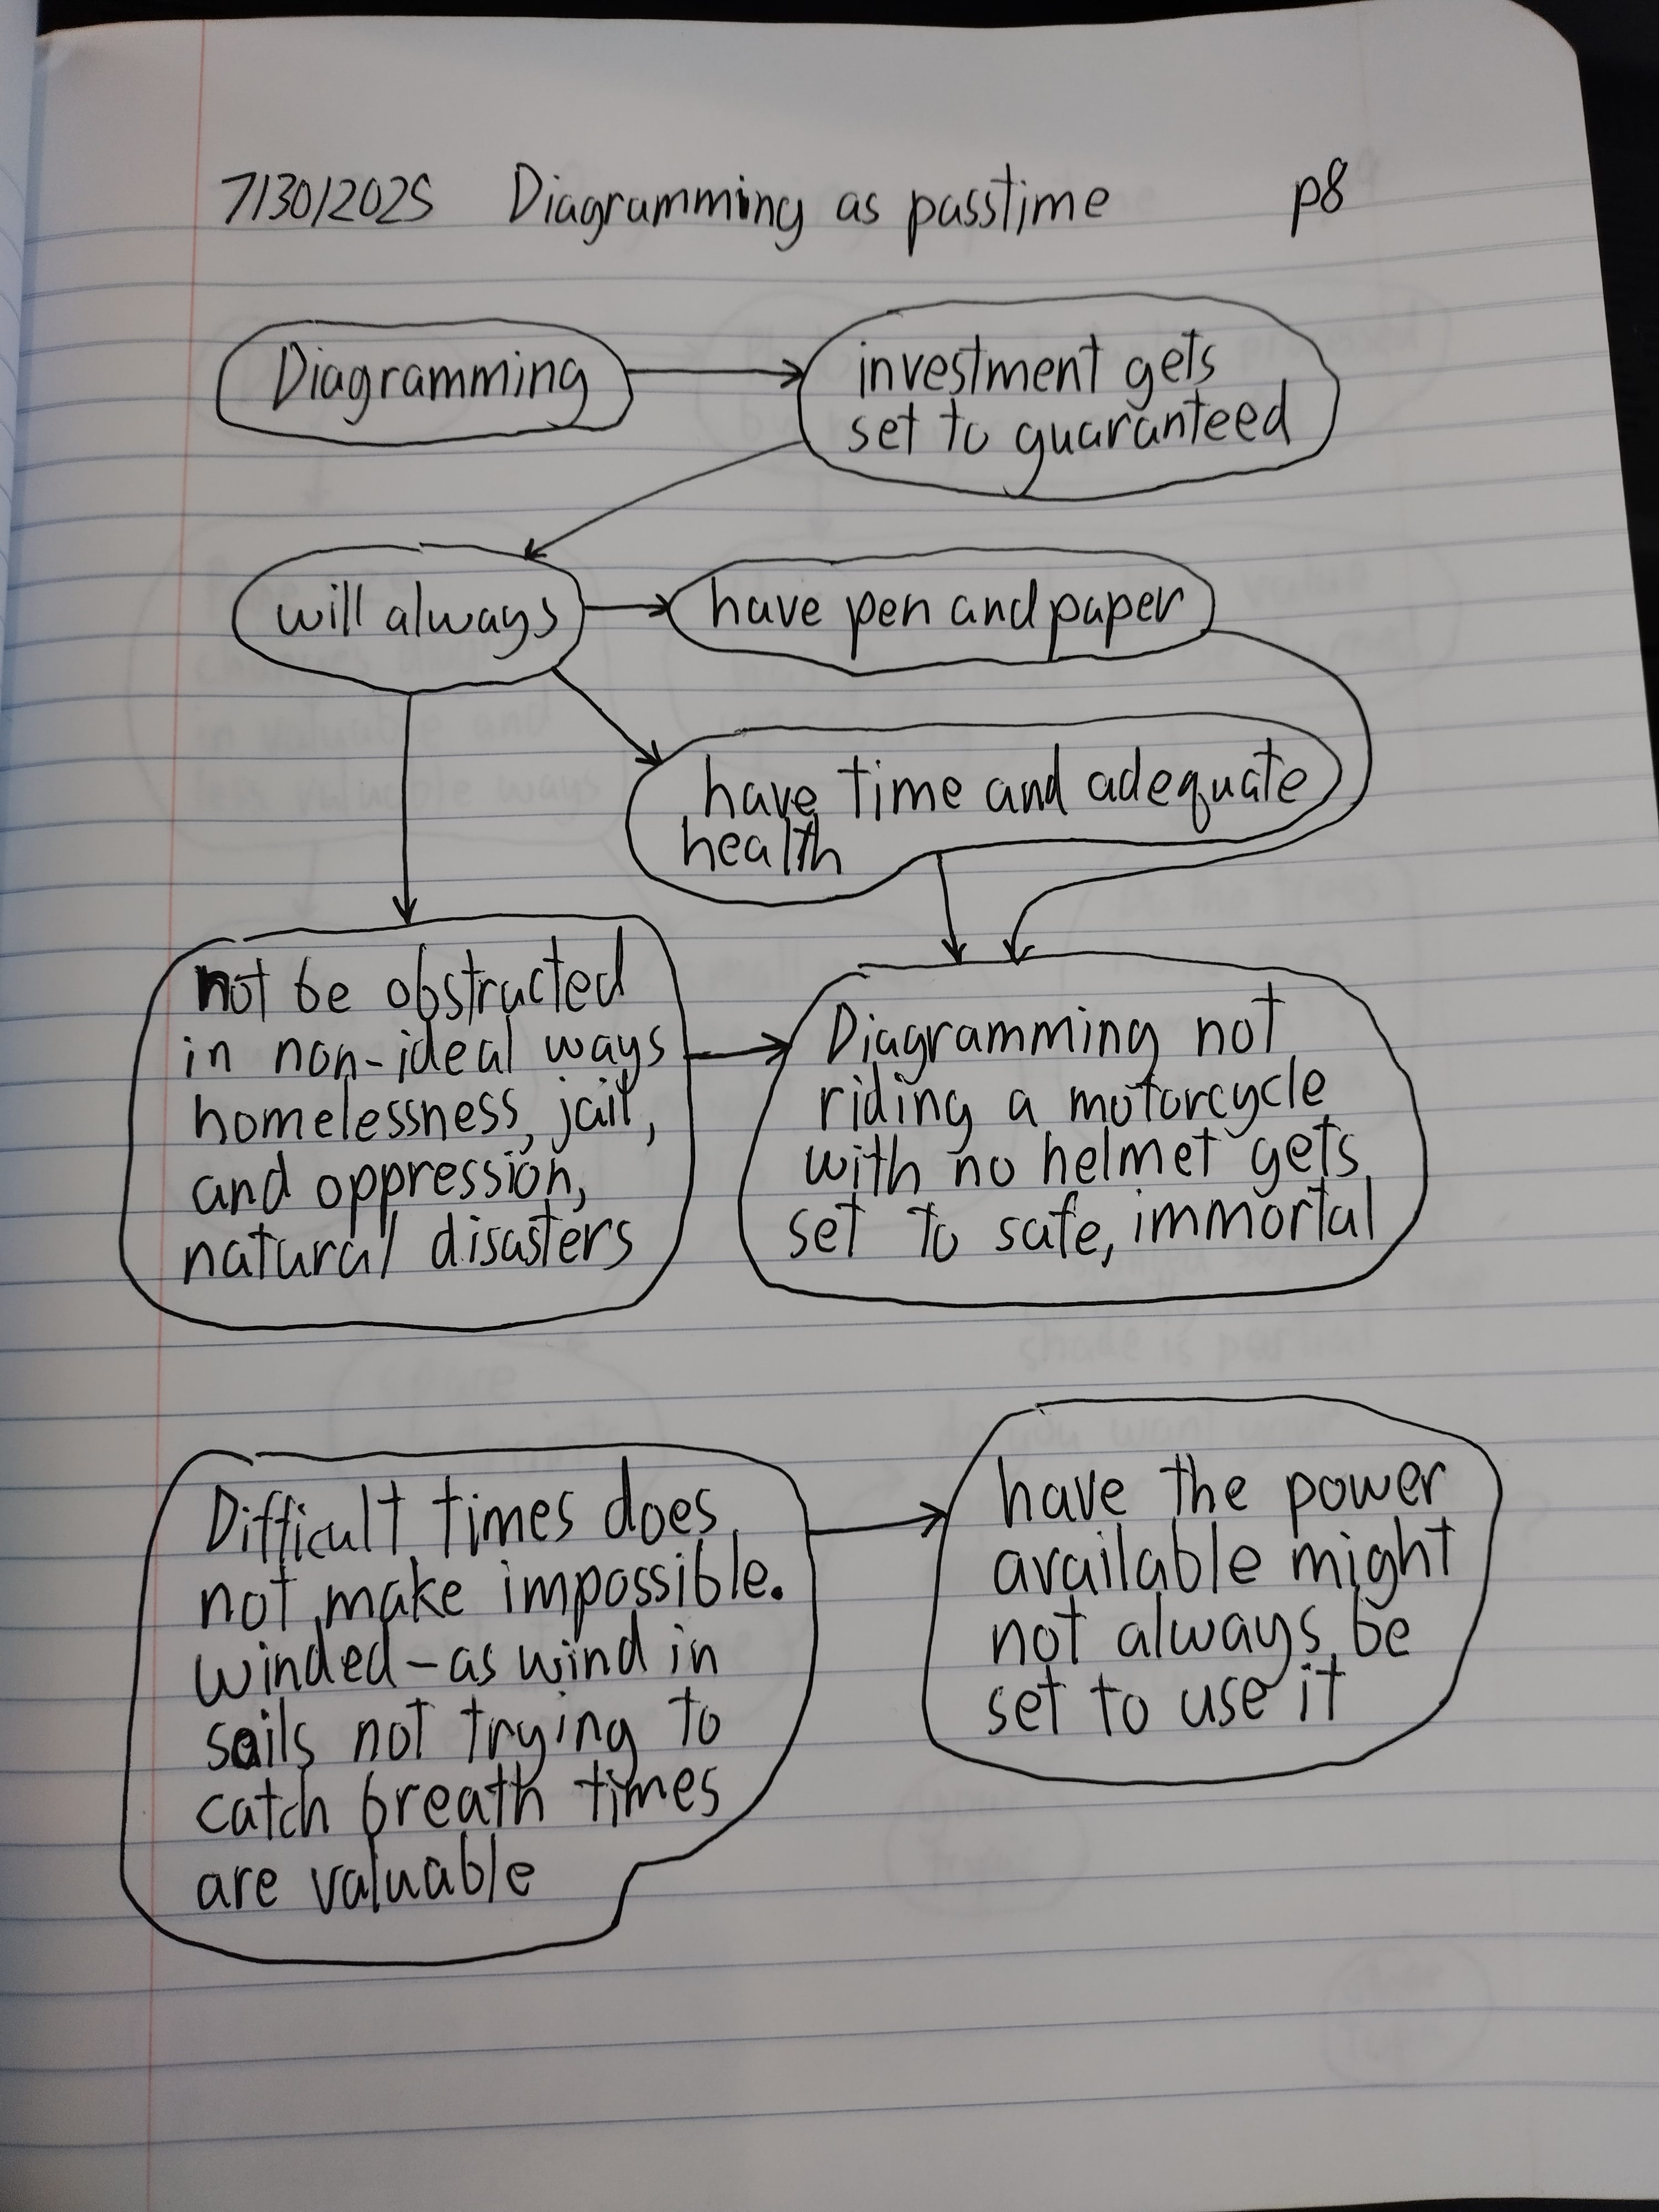 7/30/2025 Diagramming as passtime p8
Diagramming
investment gets
set to guaranteed
will always
have pen and paper
have time and adequate
health
not be obstructed
in non-ideal ways
homelessness, jail,
and oppression,
natural disasters
Diagramming not
riding a motorcycle
with no helmet gets
set to safe, immortal
Difficult times does
not make impossible.
winded-as wind in
sails not trying to
catch breath times
are valuable
have the power
available might
not always be
set to use it